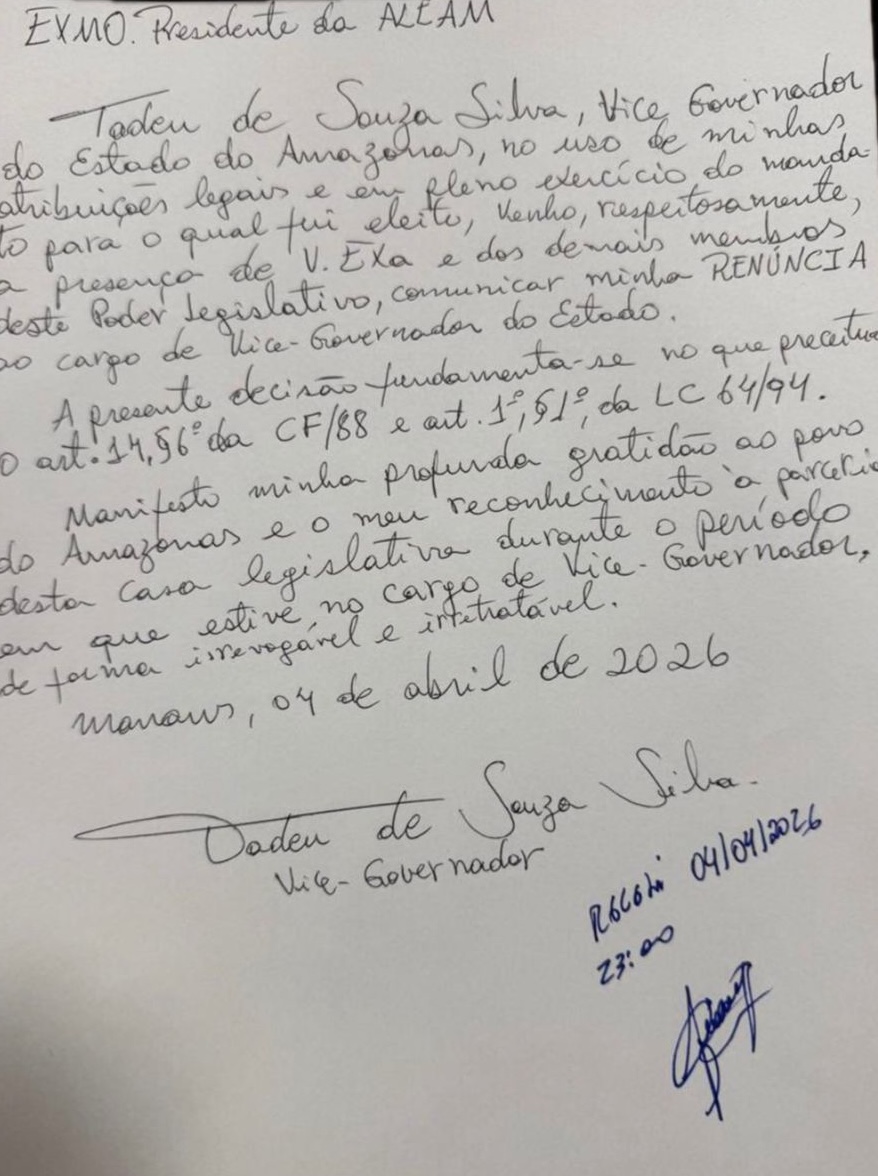 EXMO. Presidente da ALEAM
Tadeu de Souza Silva, Vice Governador
do Estado do Amazonas, no uso de minhas
atribuições legais e em pleno exercício do manda-
to para o qual fui eleito, venho, respeitosamente,
a presença de V. EXa e dos demais membros
deste Poder Legislativo, comunicar minha RENÚNCIA
ao cargo de Vice-Governador do Estado.
A presente decisão fundamenta-se no que preceitua
o art. 14, §6º da CF/88 e art. 1º, §1º, da LC 64/94.
Manifesto minha profunda gratidão ao povo
do Amazonas e o meu reconhecimento à parceria
desta Casa legislativa durante o período
em que estive no cargo de Vice-Governador,
de forma irrevogável e irretratável.
Manaus, 04 de abril de 2026
Tadeu de Souza Silva.
Vice-Governador
Recebi 04/04/2026
23:00